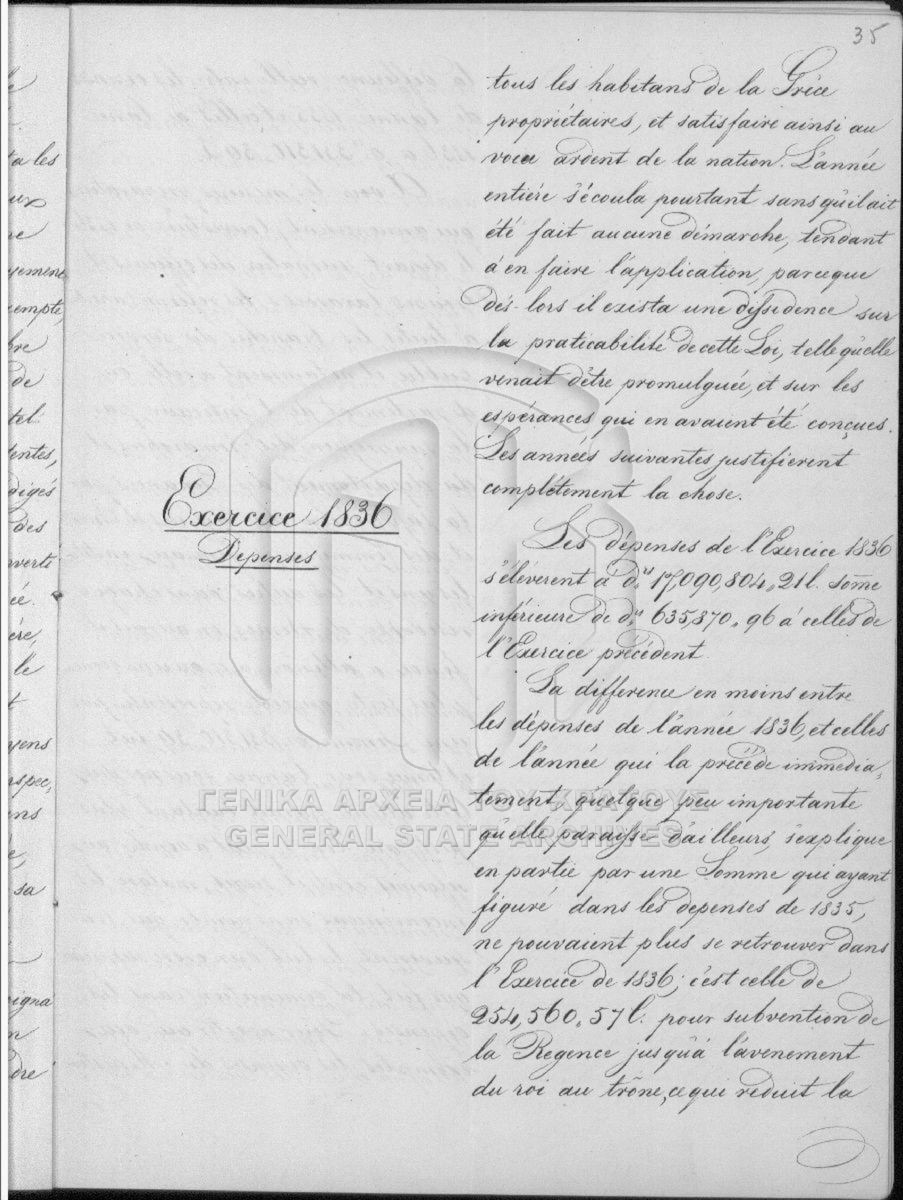 35
tous les habitans de la Gréce
propriétaires, et satisfaire ainsi au
voeu ardent de la nation. L'année
entiére s'écoula pourtant sans qu'il ait
été fait aucune démarche, tendant
á en faire l'application, parceque
dés-lors il exista une dissidence sur
la praticabilité de cette Loi, telle qu'elle
venait d'être promulguée, et sur les
espérances qui en avaient été conçues.
Les années suivantes justifierent
complétement la chose.
Exercice 1836
Dépenses
Les dépenses de l'Exercice 1836
s'élévérent á d.s 17,090,804,21 l. somme
inférieure de d.s 635,870,96 á celles de
l'Exercice précédent.
La difference en moins entre
les dépenses de l'année 1836, et celles
de l'année qui la précéde immedia,
tement, quelque peu importante
qu'elle paraisse d'ailleurs, s'explique
en partie par une Somme qui ayant
figuré dans les depenses de 1835,
ne pouvaient plus se retrouver dans
l'Exercice de 1836; c'est celle de
254,560,57 l. pour subvention de
la Regence jusqu'á l'avenement
du roi au trône, ce qui réduit la
ΓΕΝΙΚΑ ΑΡΧΕΙΑ ΤΟΥ ΚΡΑΤΟΥΣ
GENERAL STATE ARCHIVES
ta les
ux
re
yemens
compte,
bre
de
tel
entes,
digés
des
verti
cé.
ére,
le
t
yens
nspec,
ens
e,
sa
signa
n
dre